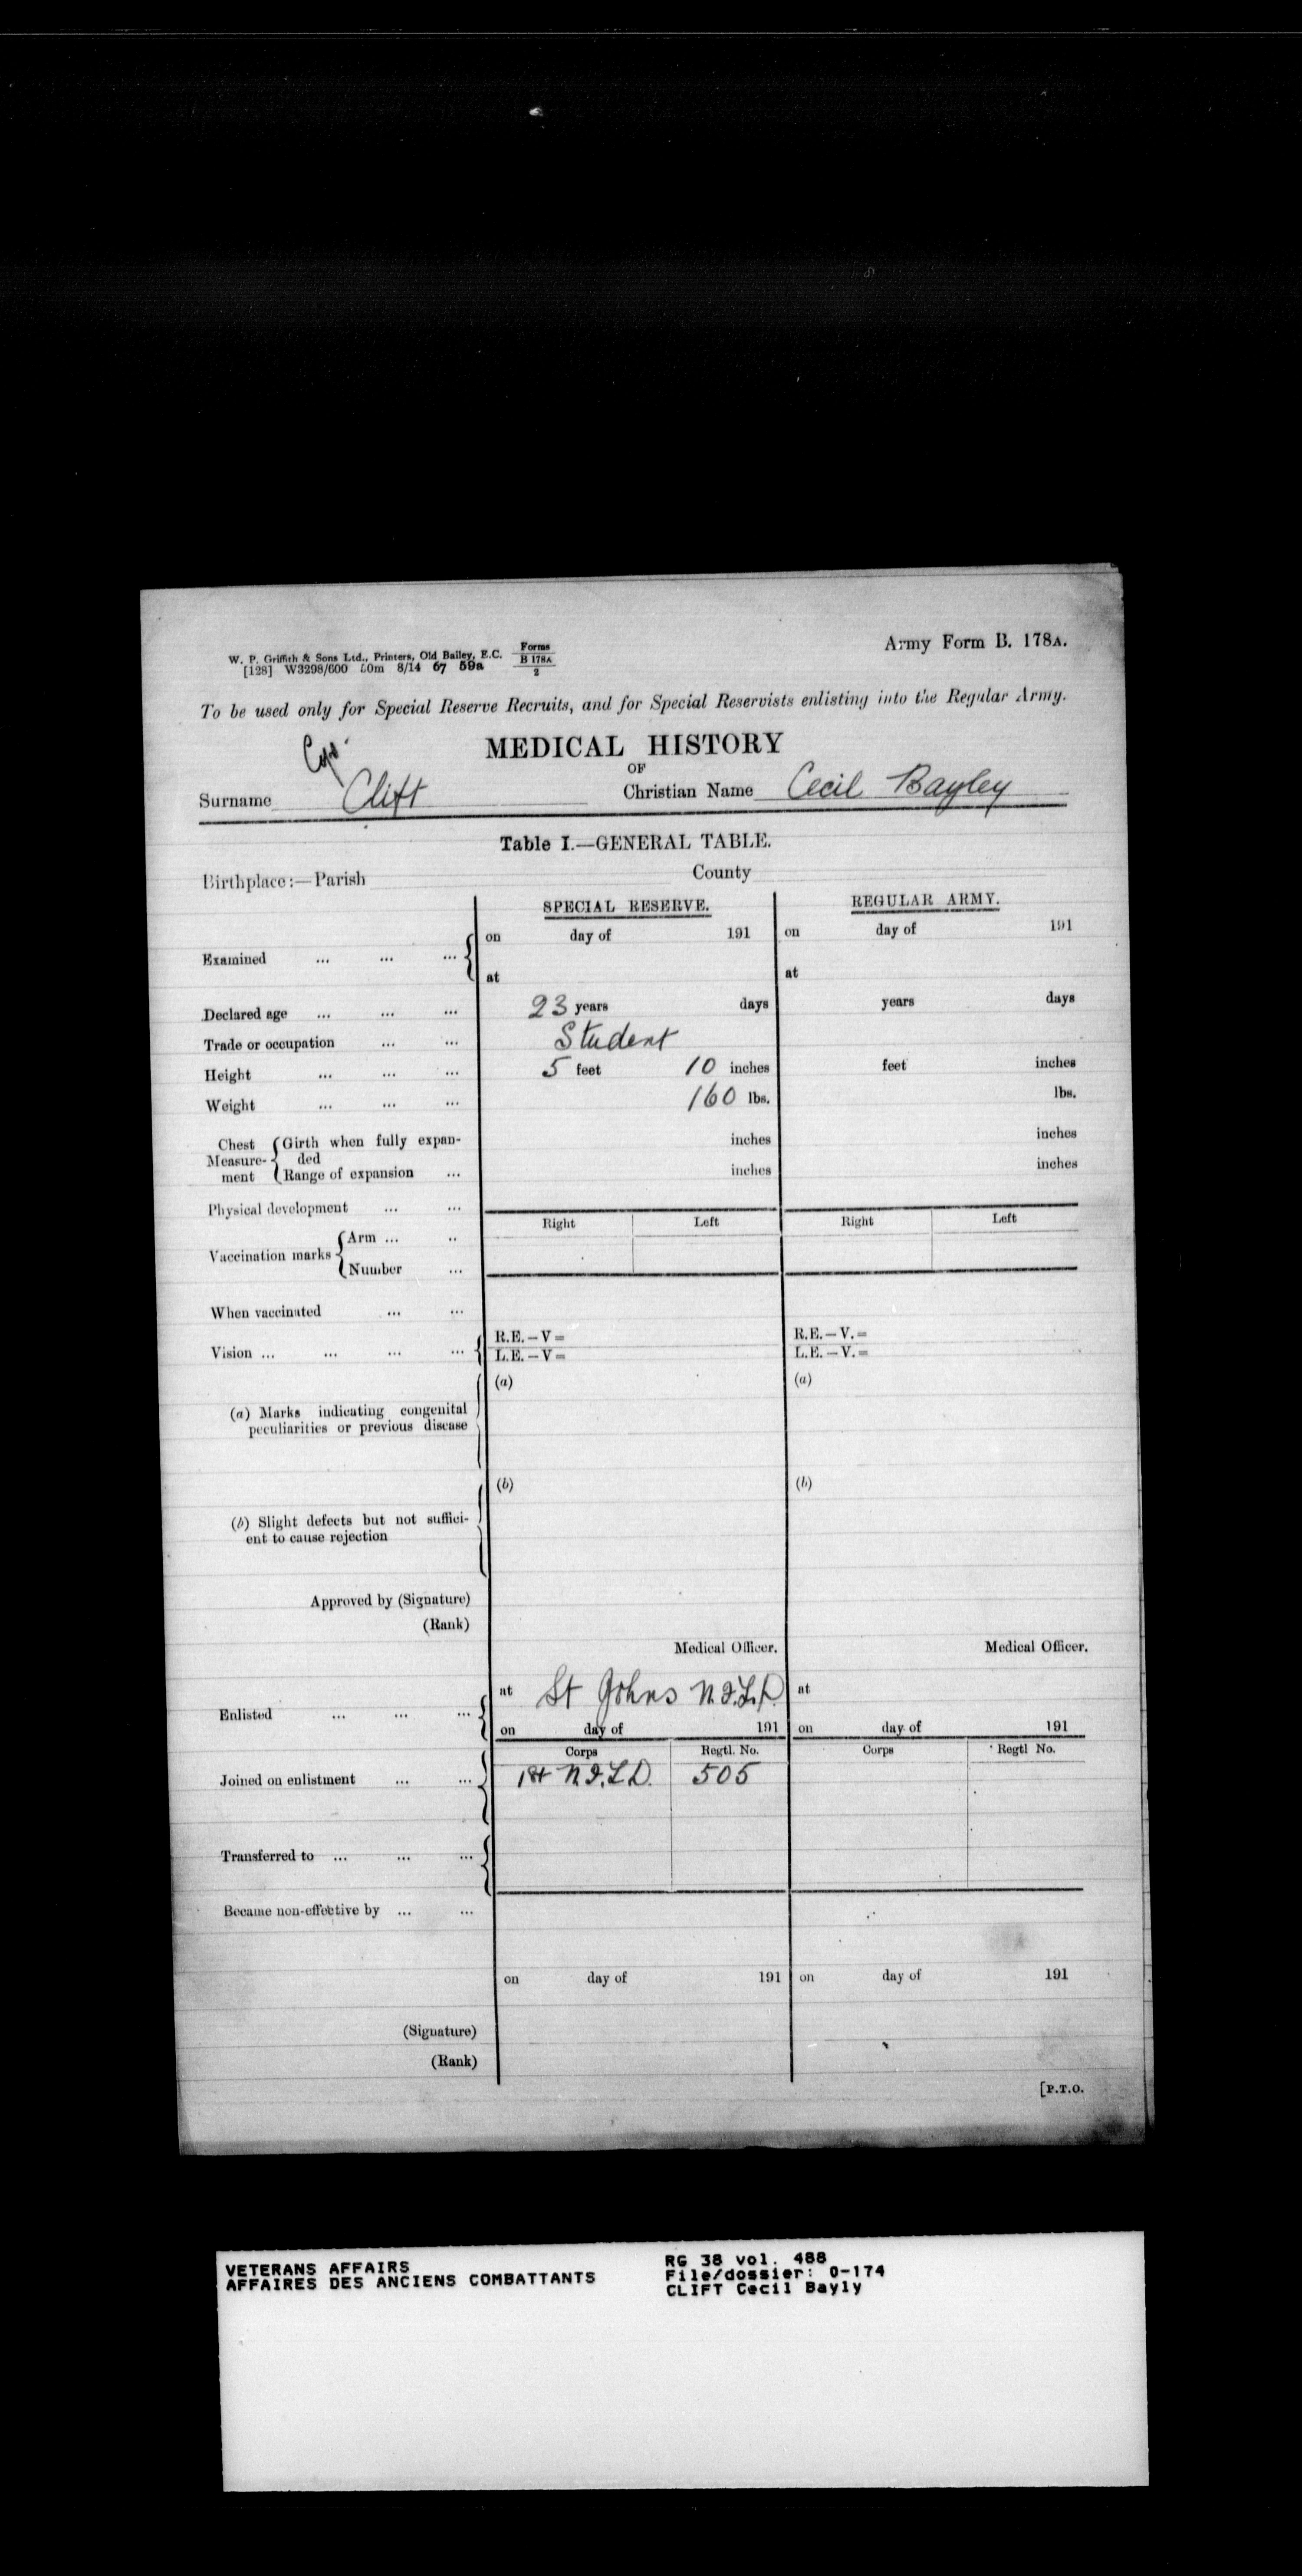 W. P. Griffith & Sons Ltd., Printers, Old Bailey, E.C.
[128] W3298/600 50m 8/14 67 59a
Forms
B 178A
2
Army Form B. 178A.
To be used only for Special Reserve Recruits, and for Special Reservists enlisting into the Regular Army.
MEDICAL HISTORY
OF
Surname Clift Christian Name Cecil Bayley
Table I.—GENERAL TABLE.
Birthplace:—Parish County
SPECIAL RESERVE. REGULAR ARMY.
Examined ... ... ... on day of 191 on day of 191
at at
Declared age ... ... ... 23 years days years days
Trade or occupation ... ... Student
Height ... ... ... 5 feet 10 inches feet inches
Weight ... ... ... 160 lbs. lbs.
Chest Measurement Girth when fully expanded inches inches
Range of expansion ... inches inches
Physical development ... ...
Right Left Right Left
Vaccination marks Arm ... ..
Number ...
When vaccinated ... ...
Vision ... ... ... ... R.E.—V= R.E.—V.=
L.E.—V= L.E.—V.=
(a) (a)
(a) Marks indicating congenital
peculiarities or previous disease
(b) (b)
(b) Slight defects but not suffici-
ent to cause rejection
Approved by (Signature)
(Rank)
Medical Officer. Medical Officer.
at St Johns N.F.L.D. at
Enlisted ... ... ...
on day of 191 on day of 191
Corps Regtl. No. Corps Regtl No.
Joined on enlistment ... ... 1st N.F.L.D. 505
Transferred to ... ... ...
Became non-effective by ... ...
on day of 191 on day of 191
(Signature)
(Rank)
[P.T.O.
VETERANS AFFAIRS
AFFAIRES DES ANCIENS COMBATTANTS
RG 38 vol. 488
File/dossier: 0-174
CLIFT Cecil Bayly